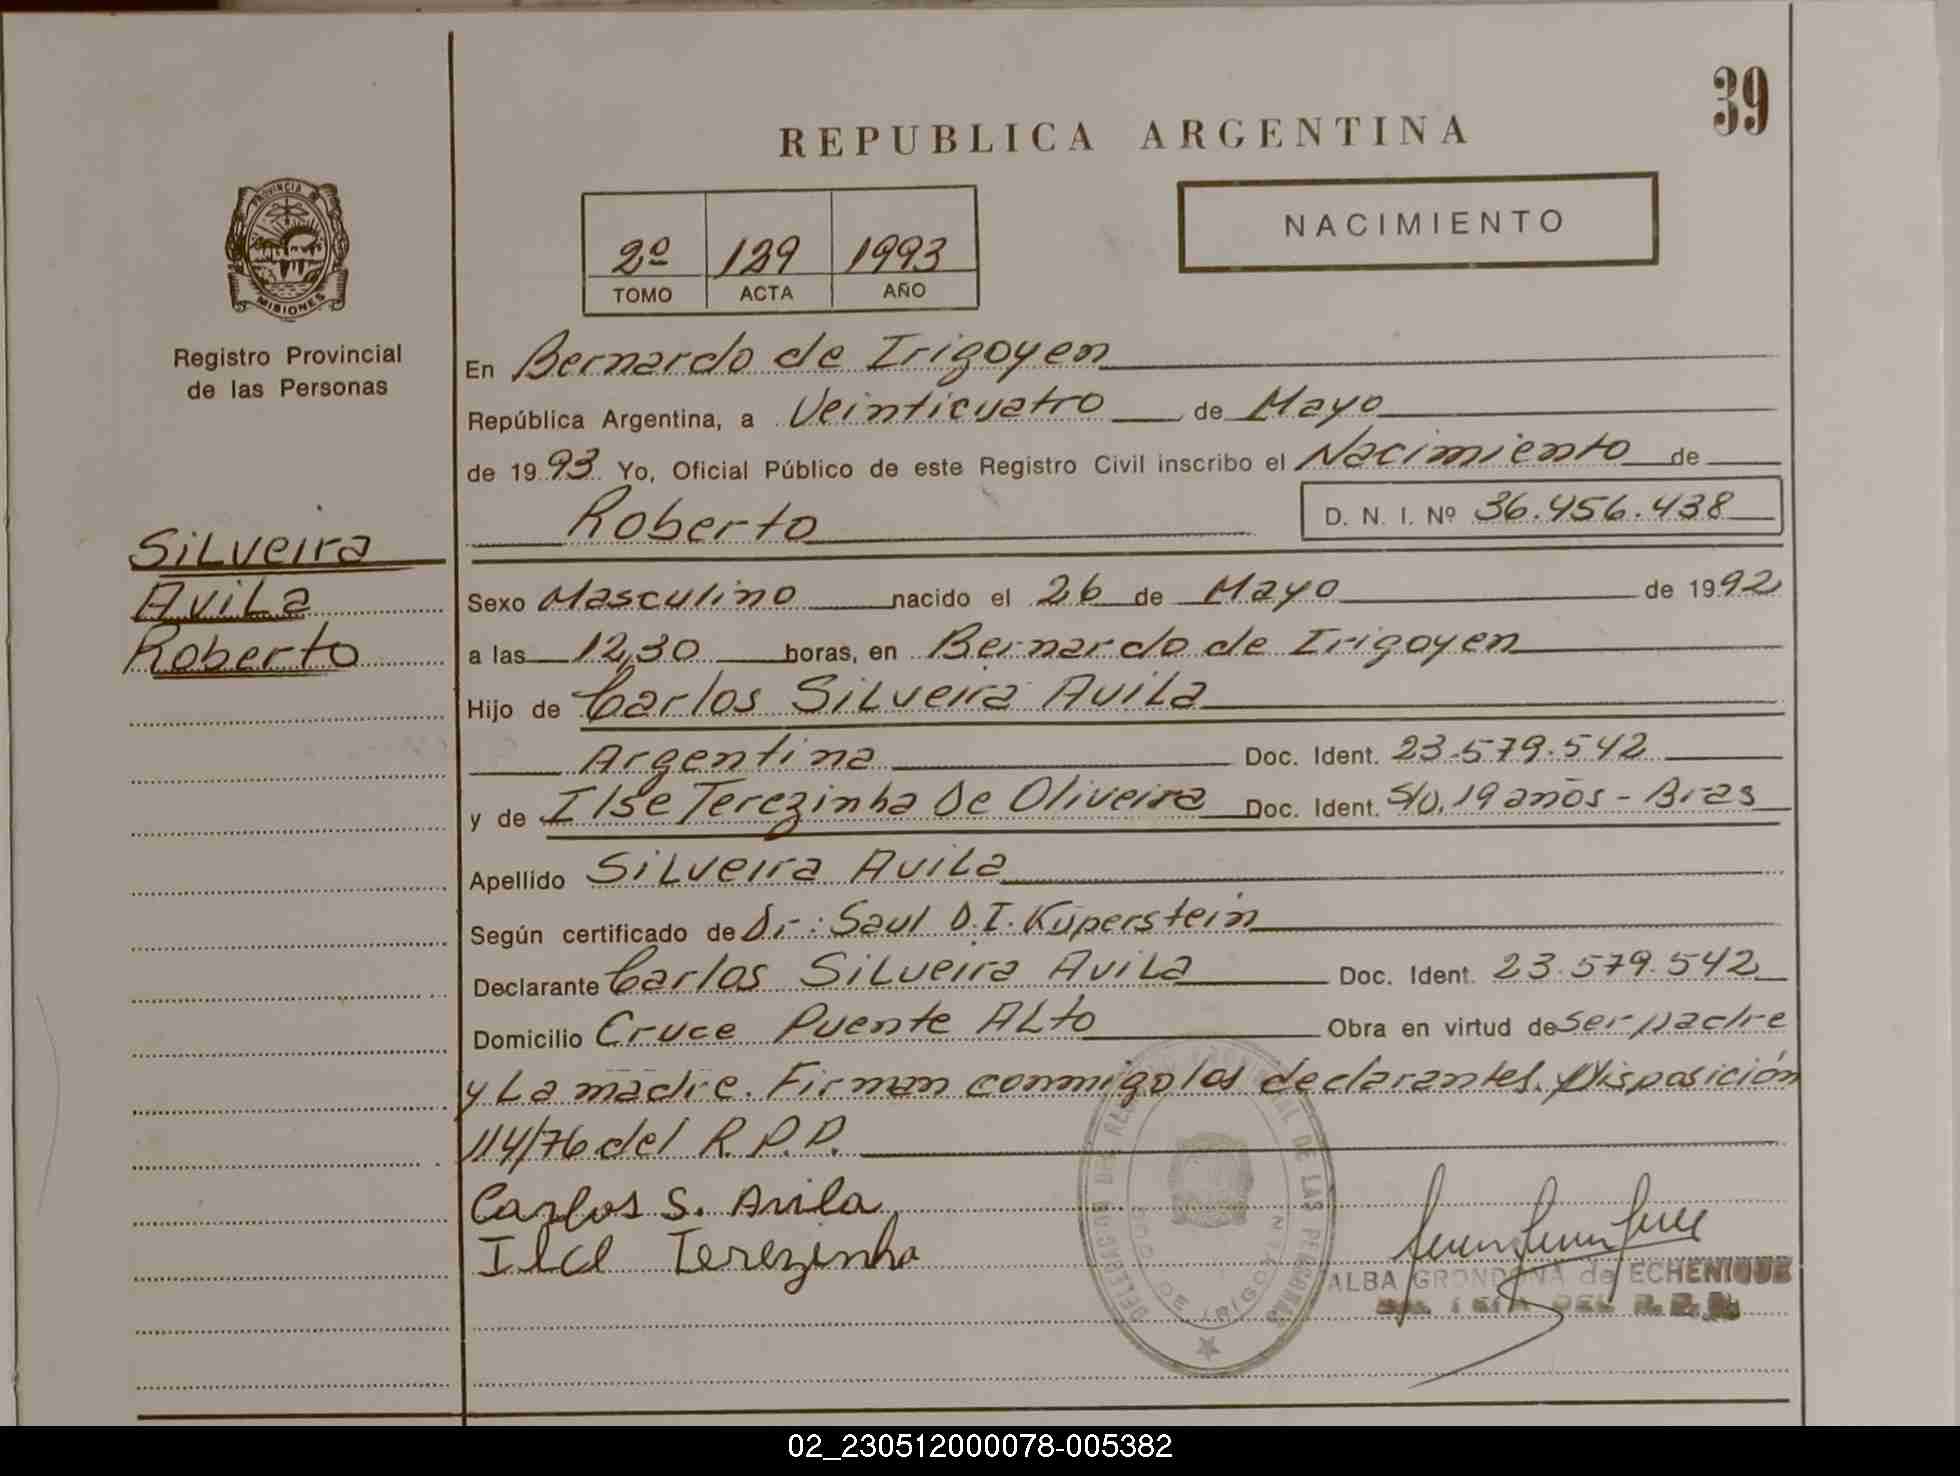 39
REPUBLICA ARGENTINA
NACIMIENTO
2º 129 1993
TOMO ACTA AÑO
PROVINCIA DE
MISIONES
Registro Provincial
de las Personas
Silveira
Avila
Roberto
En Bernardo de Irigoyen
República Argentina, a Veinticuatro de Mayo
de 1993 Yo, Oficial Público de este Registro Civil inscribo el Nacimiento de
Roberto D. N. I. Nº 36.456.438
Sexo Masculino nacido el 26 de Mayo de 1992
a las 12,30 horas, en Bernardo de Irigoyen
Hijo de Carlos Silveira Avila
Argentina Doc. Ident. 23.579.542
y de Ilse Terezinha De Oliveira Doc. Ident. S/D, 19 años - Bras
Apellido Silveira Avila
Según certificado de Dr: Saul D. I. Kuperstein
Declarante Carlos Silveira Avila Doc. Ident. 23.579.542
Domicilio Cruce Puente Alto Obra en virtud de ser padre
y La madre. Firman conmigo los declarantes. Disposición
114/76 del R.P.P.
Carlos S. Avila
Ilcl Terezinha
ALBA GRONDONA de ECHENIQUE
DEL R.P.P.
02_230512000078-005382